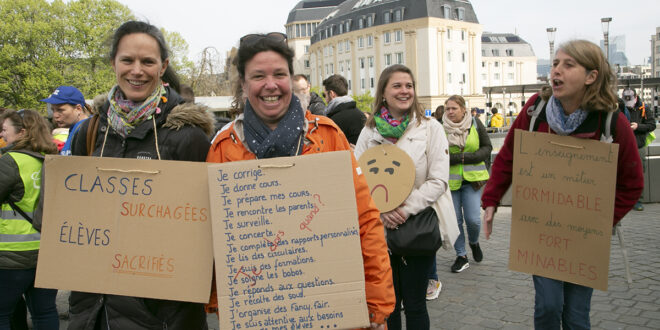 CLASSES
SURCHAGÉES
ÉLÈVES
SACRIFIÉS
Je corrige.
Je donne cours.
Je prépare mes cours.
Je rencontre les parents.
Je surveille.
Je concerte.
Je complète des rapports personnalisés.
Je lis des circulaires.
Je suis des formations.
Je soigne les bobos.
Je réponds aux questions.
Je récolte des sous.
J'organise des fancy fair.
Je suis attentive aux besoins
des élèves ...
Je suis quoi ?
L'enseignement
est un métier
FORMIDABLE
avec des moyens
FORT
MINABLES